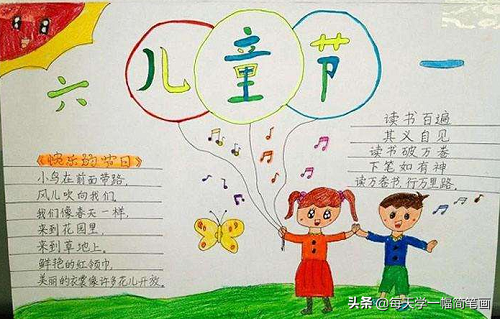 六 儿童节 一
《快乐的节日》
小鸟在前面带路
风儿吹向我们,
我们像春天一样,
来到花园里,
来到草地上。
鲜艳的红领巾,
美丽的衣裳像许多花儿开放。
读书百遍
其义自见
读书破万卷
下笔如有神
读万卷书,行万里路.
头条 @每天学一幅简笔画